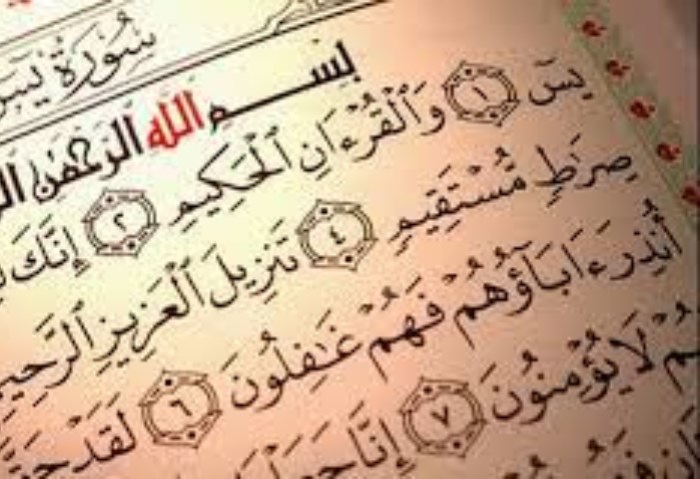 سُورَةُ يسٓ
بِسْمِ اللَّهِ الرَّحْمَٰنِ
يسٓ ١ وَٱلْقُرْءَانِ ٱلْحَكِيمِ ٢ إِنَّكَ
صِرَٰطٍ مُّسْتَقِيمٍ ٤ تَنزِيلَ ٱلْعَزِيزِ ٱلرَّحِيمِ
أُنذِرَ ءَابَآؤُهُمْ فَهُمْ غَٰفِلُونَ ٦ لَقَدْ حَقَّ
لَا يُؤْمِنُونَ ٧ إِنَّا جَعَلْنَا